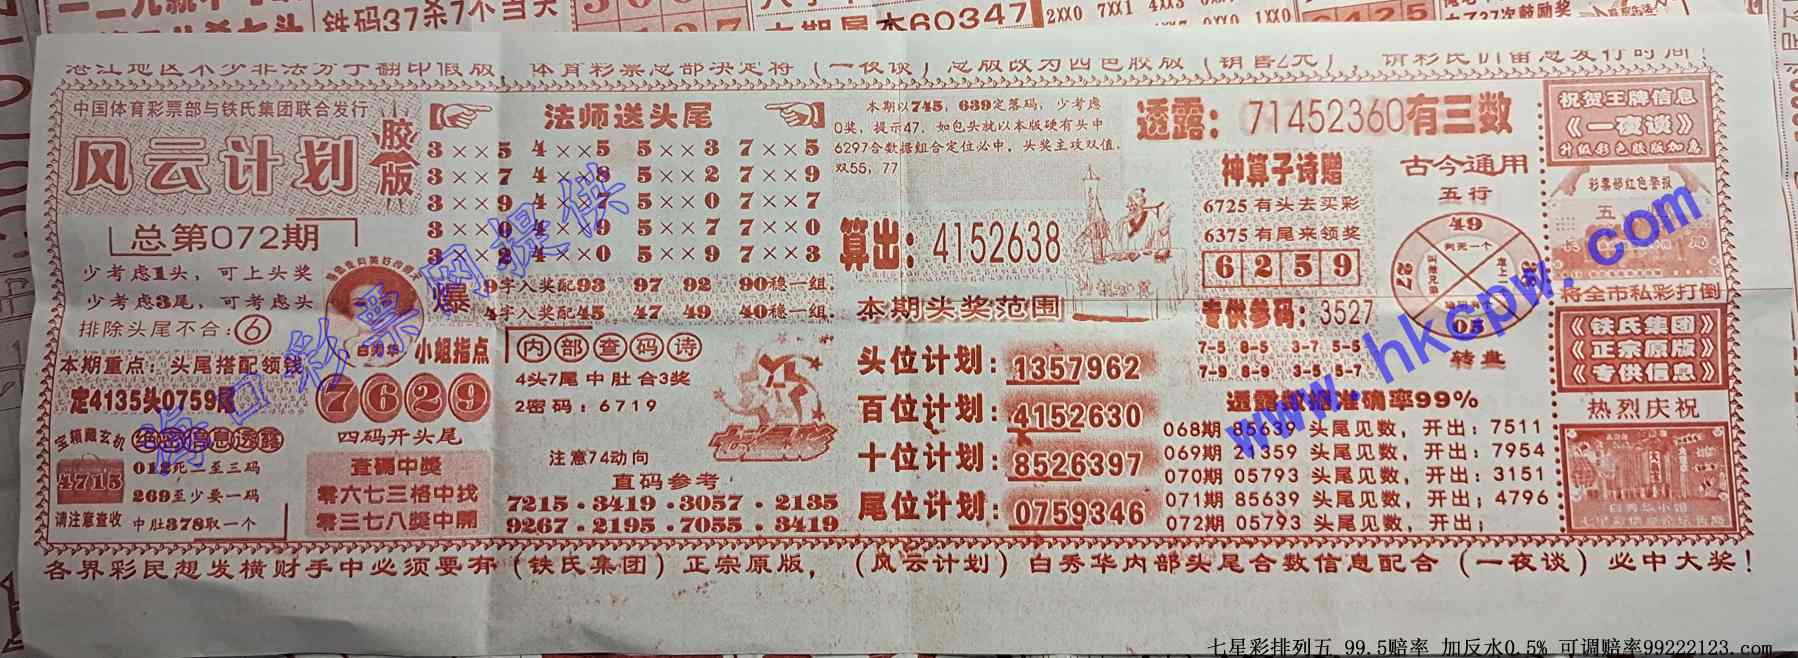 铁码37杀7个当天
60347
2XX0 7XX1
湛江地区不少非法分子翻印假版，体育彩票总部决定将（一夜谈）总版改为四色胶版（销售2元），请彩民们留意发行时间！
中国体育彩票部与铁氏集团联合发行
风云计划
胶版
总第072期
少考虑1头，可上头奖
少考虑3尾，可考虑头
排除头尾不合：6
本期重点：头尾搭配领钱
定4135头0759尾
宝箱藏玄机 绝密信息透露
4715
012死一至三码
269至少要一码
请注意查收
中肚378取一个
白秀华
小姐指点
7629
四码开头尾
查碼中獎
零六七三格中找
零三七八獎中開
法师送头尾
3××5 4××5 5××3 7××5
3××7 4××8 5××2 7××9
3××9 4××7 5××0 7××7
3××0 4××9 5××7 7××0
3××2 4××0 5××9 7××3
爆
9字入奖配93 97 92 90稳一组.
4字入奖配45 47 49 40稳一组.
内部查码诗
4头7尾中肚合3奖
2密码：6719
注意74动向
七星彩
直码参考
7215·3419·3057·2135
9267·2195·7055·3419
本期以745，639定落码，少考虑
0奖，提示47，如包头就以本版硬有头中
6297合数据组合定位必中，头奖主攻双值.
双55，77
算出：4152638
本期头奖范围
头位计划：1357962
百位计划：4152630
十位计划：8526397
尾位计划：0759346
透露：71452360有三数
神算子诗赠
6725有头去买彩
6375有尾来领奖
6259
专供参码：3527
7-5 8-5 3-7 5-5
7-9 8-9 3-5 5-7
古今通用
五行
49
27
05
转盘
透露数据准确率99%
068期 85639 头尾见数，开出：7511
069期 21359 头尾见数，开出：7954
070期 05793 头尾见数，开出：3151
071期 85639 头尾见数，开出；4796
072期 05793 头尾见数，开出；
祝贺王牌信息
《一夜谈》
升级彩色胶版加息
彩票部红色警报
将全市私彩打倒
《铁氏集团》
《正宗原版》
《专供信息》
热烈庆祝
白秀华小姐
各界彩民想发横财手中必须要有（铁氏集团）正宗原版，（风云计划）白秀华内部头尾合数信息配合（一夜谈）必中大奖！
海口彩票网提供
www.hkcpw.com
七星彩排列五 99.5赔率 加反水0.5% 可调赔率99222123.com